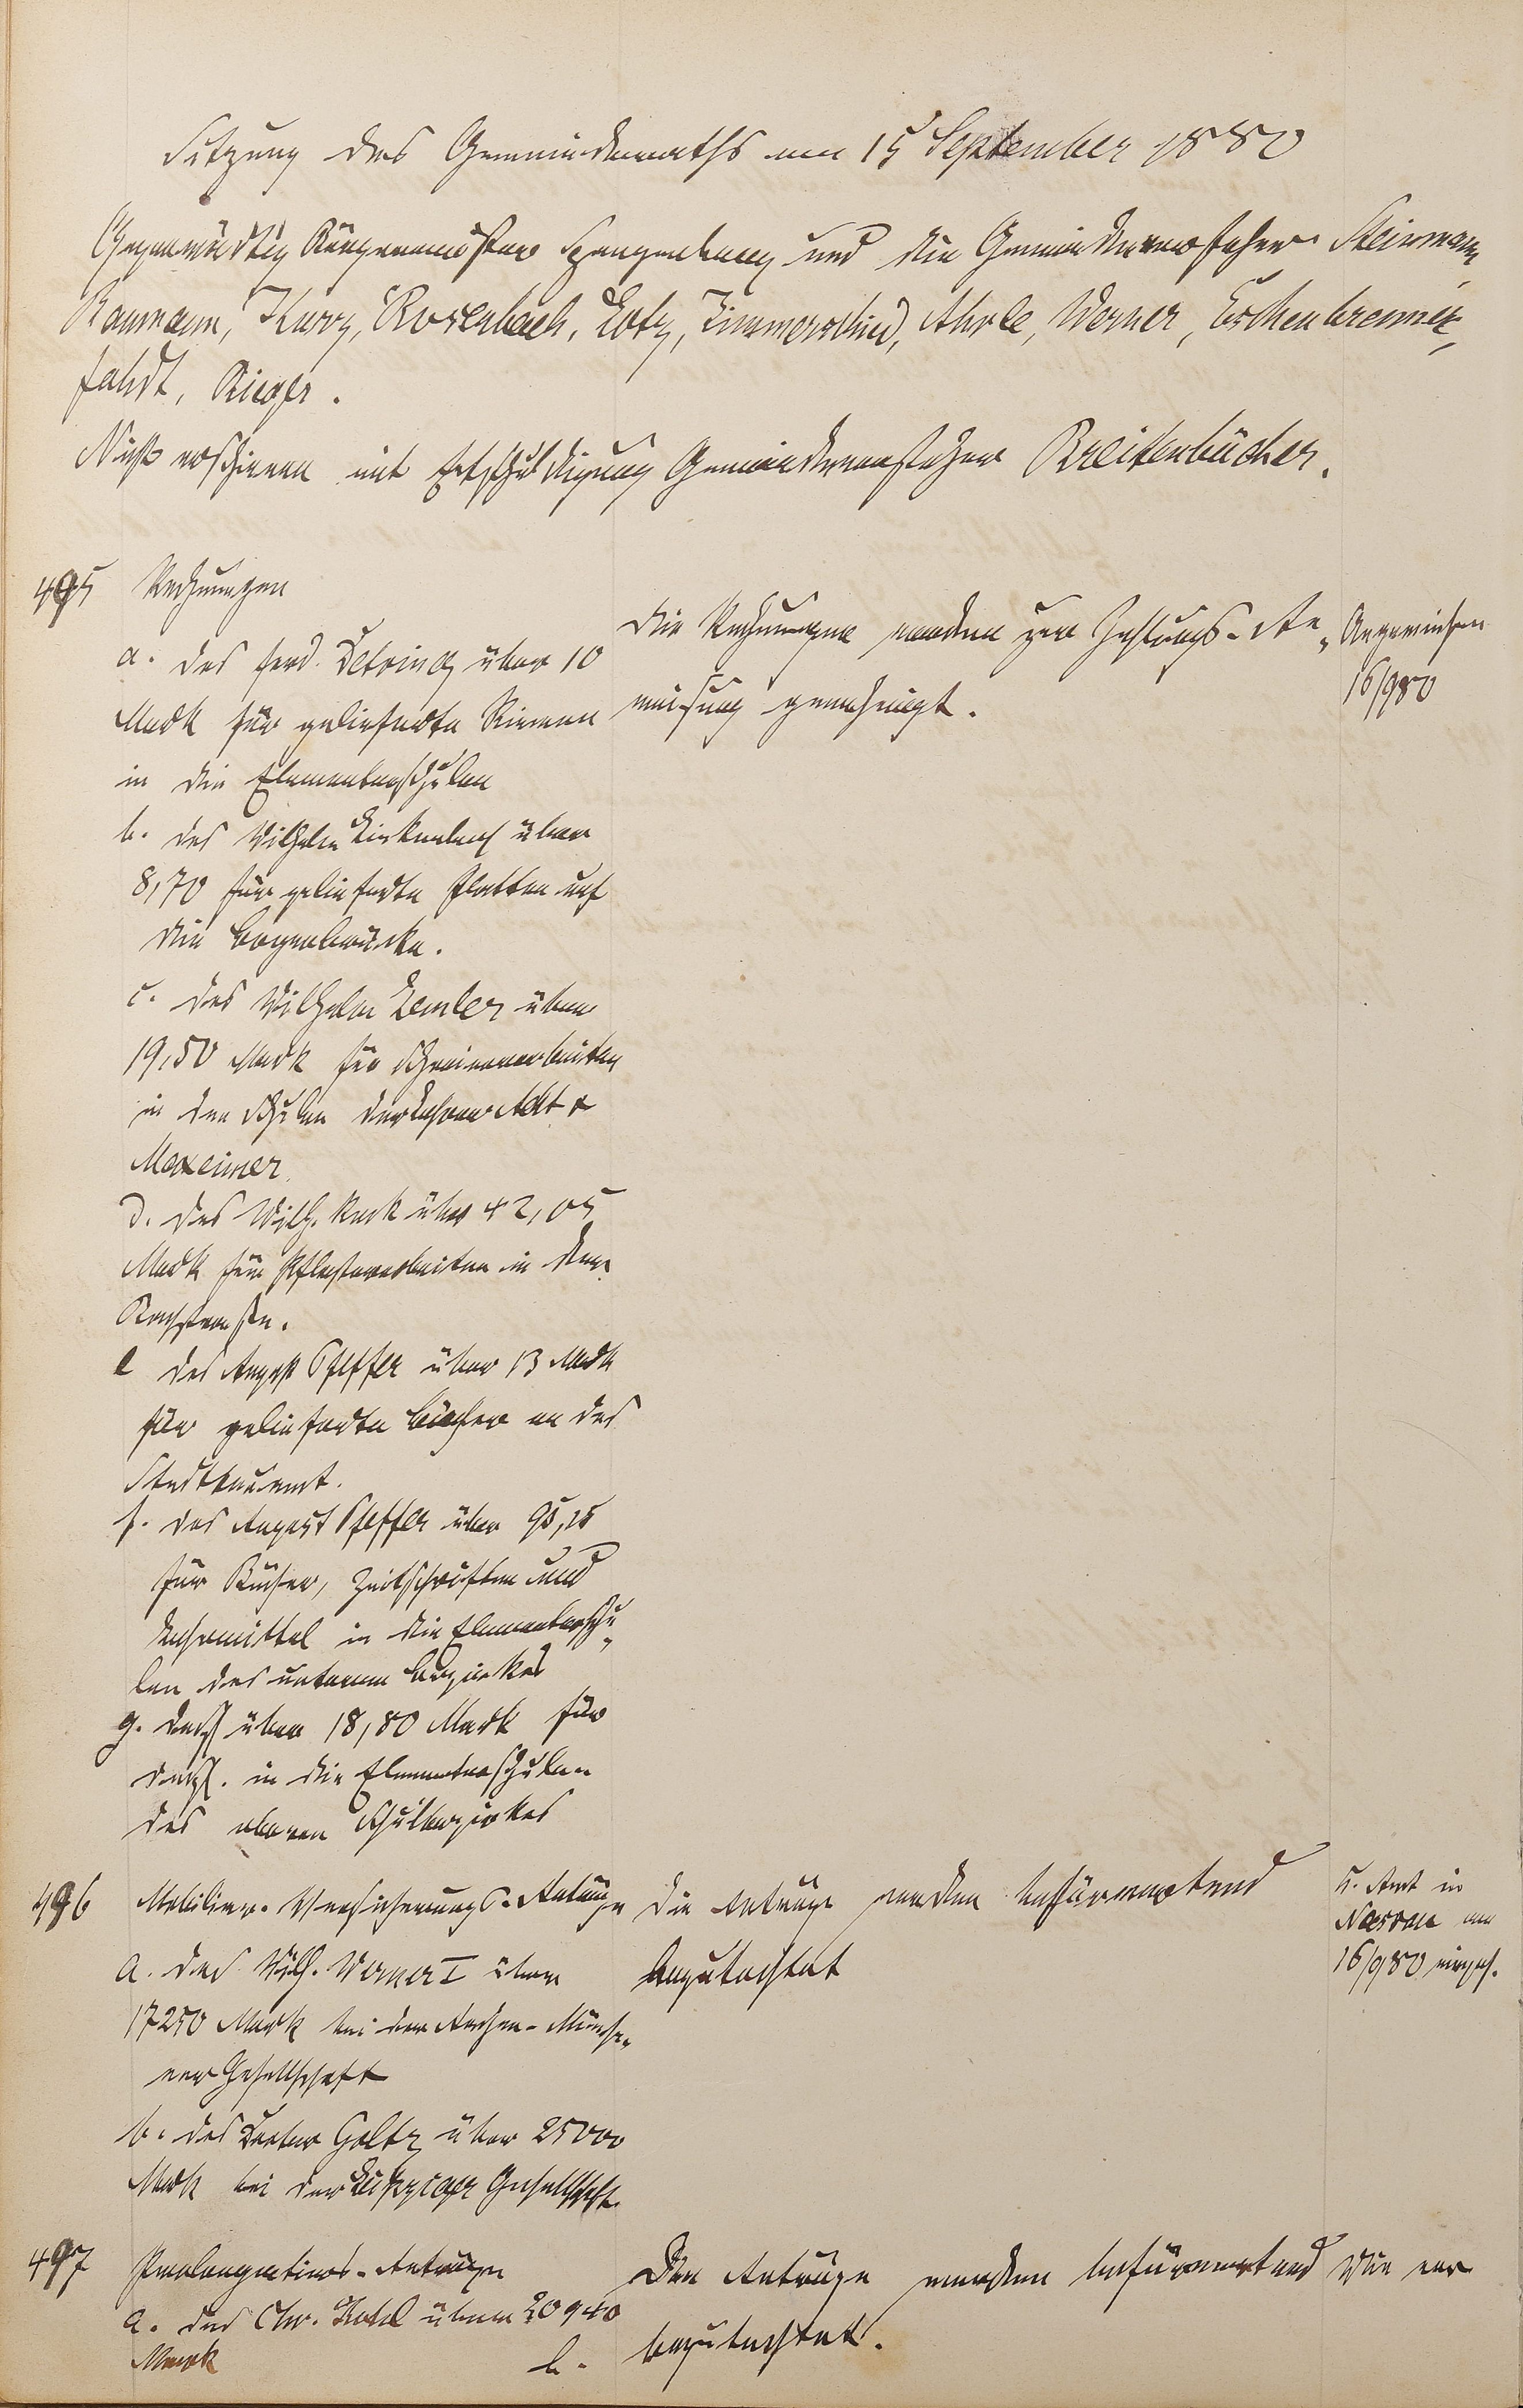 Sitzung des Gemeinderaths am 15 September 1880
Gegenwärtig Bürgermeister Spangenberg und die Gemeindevorsteher Steinmann,
Baumann, Kurz, Rosenbach, Lotz, Zimmerschied, Ahrle, Werner, Eschenbrenner,
Fahdt, Rieger.
Nicht erschienen mit Entschuldigung Gemeindevorsteher Breitenbücher.
495 Rechnungen
a. des Ferd. Detring über 10
Mark für gelieferte Riemen
in die Elementarschulen
b. des Wilhelm Linkenbach über
8,70 für gelieferte Platten auf
die Bogenbrücke.
c. des Wilhelm Lemler über
19,50 Mark für Schreinerarbeiten
in den Schulen der Lehrer Acht &
Maxeiner.
d. des Wilh. Kurk über 42,05
Mark für Pflasterarbeiten in der
Bachstraße.
e des August Pfeffer über 13 Mark
für gelieferte Bücher an das
Stadtbauamt.
f. des August Pfeffer über 95,15
für Bücher, Zeitschriften und
Lehrmittel in die Elementarschu„
len des unteren Bezirkes
g. dessl. über 18,80 Mark für
dergl. in die Elementarschulen
des oberen Schulbezirkes
Die Rechnungen werden zur Zahlungs-An„
weisung genehmigt.
Angewiesen
16/9 80
496 Mobiliar-Versicherungs-Anträge
a. des Wilh. Werner I über
17250 Mark bei der Aachen-Münche„
ner Gesellschaft
b. des Doctor Goltz über 25000
Mark bei der Leipziger Gesellschaft.
Die Anträge werden befürwortend
begutachtet
K. Amt in
Nassau am
16/9 80 einges.
497 Prolongations-Anträge
a. des Chr. Kohl über 20940
Mark b.
Die Anträge werden befürwortend
begutachtet.
Wie vor